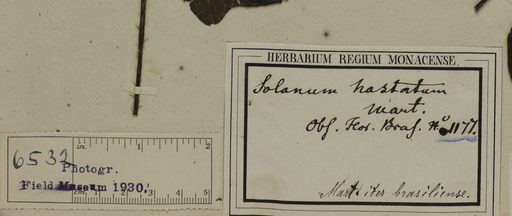 HERBARIUM REGIUM MONACENSE.
Solanum hastatum
Mart.
Obs. Flor. Bras. No 1177.
Mart. iter brasiliense.
in. 1 2
6532
Photogr.
Field Museum 1930.
cm. 1 2 3 4 5